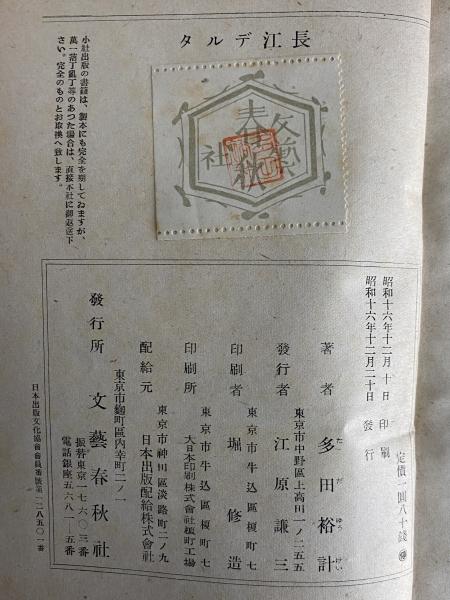 長江デルタ
文藝
春秋
社
昭和十六年十二月十日 印刷
昭和十六年十二月二十日 發行
定價一圓八十錢
著者 多田裕計
ただゆうけい
東京市中野區上高田一ノ二五五
發行者 江原謙三
東京市牛込區榎町七
印刷者 堀修造
東京市牛込區榎町七
印刷所 大日本印刷株式會社榎町工場
東京市神田區淡路町二ノ九
配給元 日本出版配給株式會社
東京市麴町區內幸町二ノ一
發行所 文藝春秋社
振替東京一七六〇三番
電話銀座五六八一―五番
日本出版文化協會會員番號第一二八五〇一番
小社出版の書籍は、製本にも完全を期してゐますが、
萬一落丁亂丁等のあつた場合は、直接本社に御返送下
さい。完全のものとお取換へ致します。